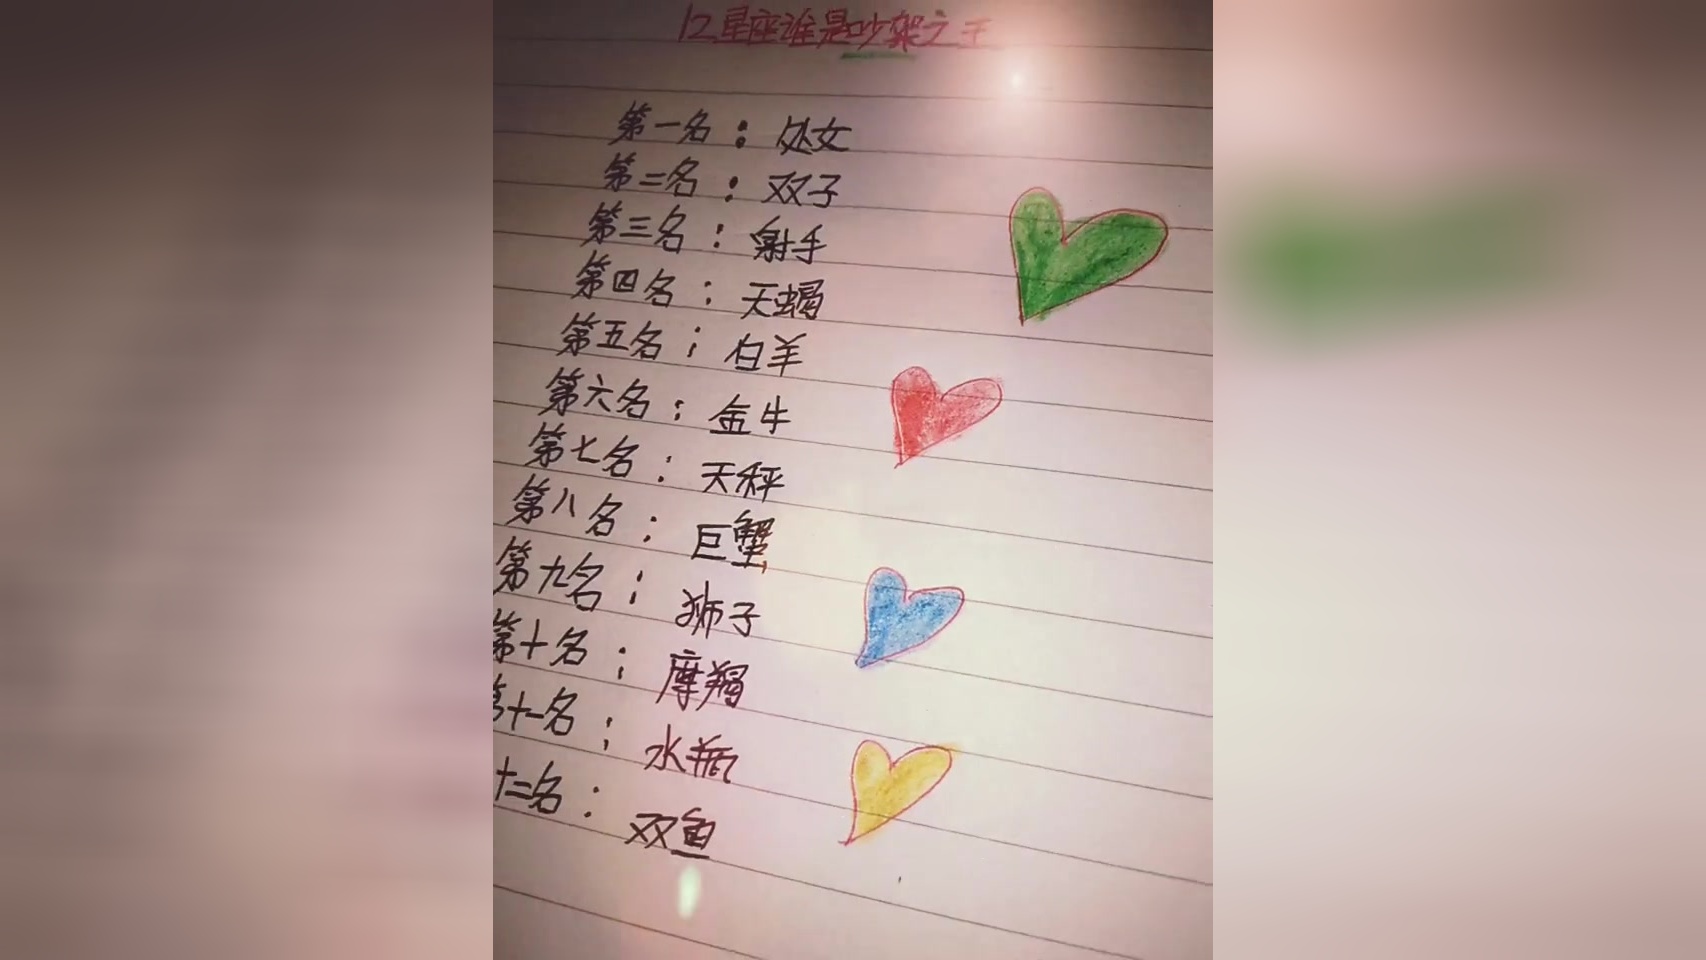 12星座谁是吵架之王
第一名：处女
第二名：双子
第三名：射手
第四名：天蝎
第五名：白羊
第六名：金牛
第七名：天秤
第八名：巨蟹
第九名：狮子
第十名：摩羯
第十一名：水瓶
十二名：双鱼